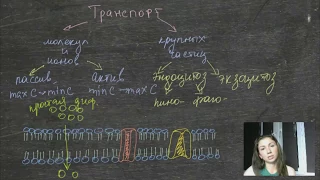 Транспорт
молекул
и
ионов
крупных
частиц
пассив. актив. эндоцитоз экзоцитоз
max C→min C min C→max C пино- фаго-
простая диф.